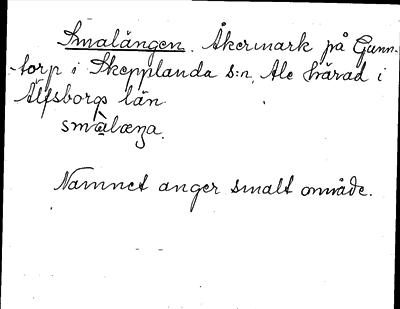 Smalängen. Åkermark på Gunn-
-torp i Skepplanda s:n, Ale härad i
Älfsborgs län.
småläŋa.
Namnet anger smalt område.